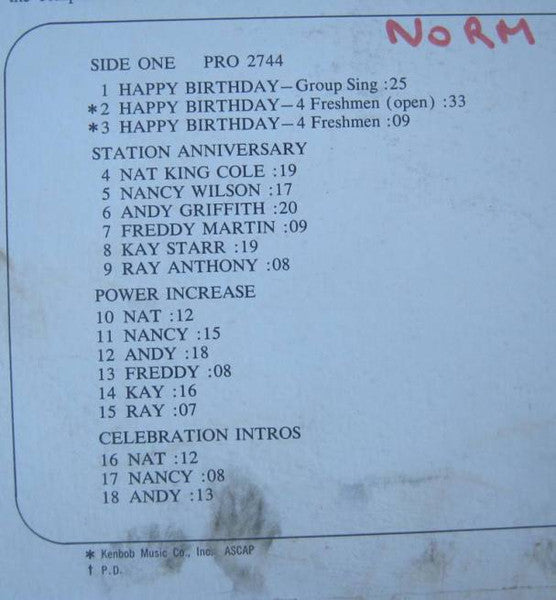 NORM
SIDE ONE PRO 2744
1 HAPPY BIRTHDAY—Group Sing :25
*2 HAPPY BIRTHDAY—4 Freshmen (open) :33
*3 HAPPY BIRTHDAY—4 Freshmen :09
STATION ANNIVERSARY
4 NAT KING COLE :19
5 NANCY WILSON :17
6 ANDY GRIFFITH :20
7 FREDDY MARTIN :09
8 KAY STARR :19
9 RAY ANTHONY :08
POWER INCREASE
10 NAT :12
11 NANCY :15
12 ANDY :18
13 FREDDY :08
14 KAY :16
15 RAY :07
CELEBRATION INTROS
16 NAT :12
17 NANCY :08
18 ANDY :13
* Kenbob Music Co., Inc. ASCAP
† P.D.